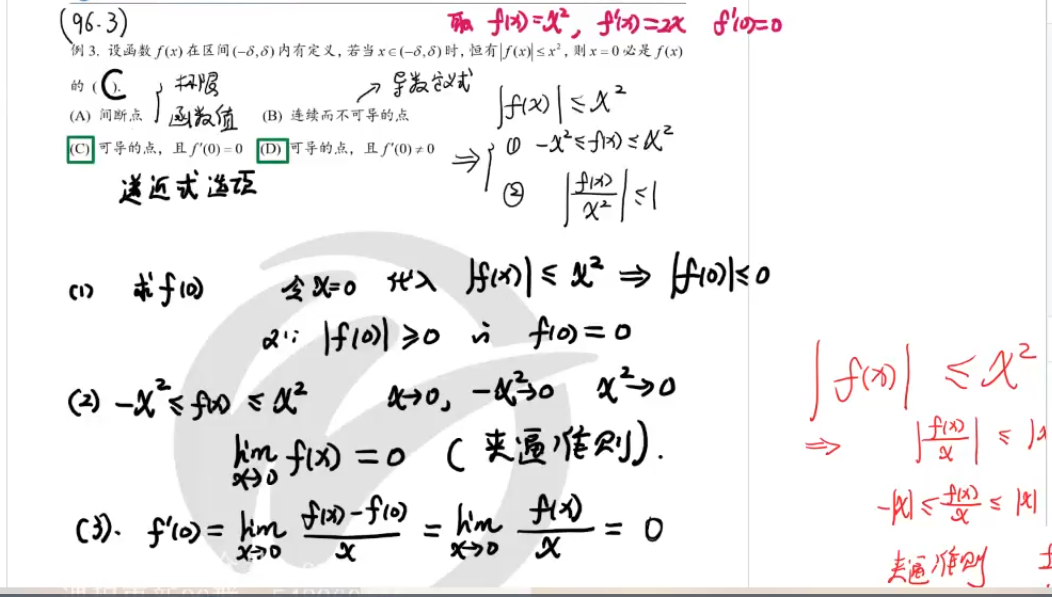 (96.3)
取 f(x)=x², f'(x)=2x f'(0)=0
例 3. 设函数 f(x) 在区间(-δ,δ) 内有定义, 若当 x∈(-δ,δ) 时, 恒有|f(x)|≤x², 则 x=0 必是 f(x)
的 ( C ).
极限
函数值
→ 导数定义式
(A) 间断点 (B) 连续而不可导的点
(C) 可导的点, 且 f'(0)=0 (D) 可导的点, 且 f'(0)≠0
递近式选项
|f(x)|≤x²
⇒ { ① -x²≤f(x)≤x²
② |f(x)/x²|≤1
(1) 求f(0) 令x=0 代入 |f(x)|≤x² ⇒ |f(0)|≤0
又∵ |f(0)|≥0 ∴ f(0)=0
(2) -x²≤f(x)≤x² x→0, -x²→0 x²→0
lim x→0 f(x)=0 (夹逼准则).
(3). f'(0)= lim x→0 (f(x)-f(0))/x = lim x→0 f(x)/x = 0
|f(x)| ≤x²
⇒ |f(x)/x| ≤ |x
-|x|≤ f(x)/x ≤ |x|
夹逼准则